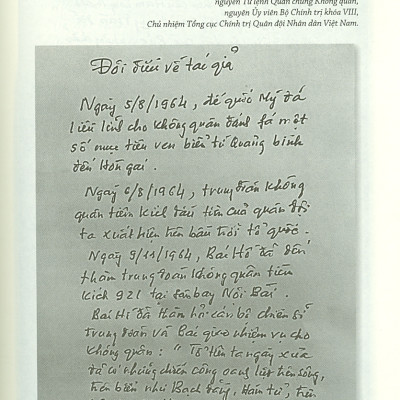 nguyên Tư lệnh Quân chủng Không quân,
nguyên Ủy viên Bộ Chính trị khóa VIII,
Chủ nhiệm Tổng cục Chính trị Quân đội Nhân dân Việt Nam.
Đôi điều về tác giả
Ngày 5/8/1964, đế quốc Mỹ đã
liều lĩnh cho không quân đánh phá một
số mục tiêu ven biển từ Quảng bình
đến Hòn gai.
Ngày 6/8/1964, trung đoàn không
quân tiêm kích đầu tiên của quân đội
ta xuất hiện trên bầu trời tổ quốc.
Ngày 9/11/1964, Bác Hồ đã đến
thăm trung đoàn không quân tiêm
kích 921 tại sân bay Nội Bài.
Bác Hồ đã thăm hỏi cán bộ chiến sĩ
trung đoàn và Bác giao nhiệm vụ cho
không quân: "Tổ tiên ta ngày xưa
đã có những chiến công oanh liệt trên sông,
trên biển như Bạch đằng, Hàm tử, trên